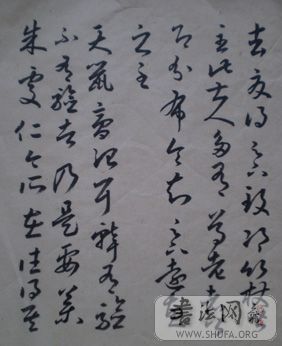 去夏得足下致邛竹杖
至此士人多有尊老者
即分布令知足下遠
之至
天鼠膏治耳聾有驗
不有驗者乃是要藥
朱處仁今所在往得其
書法网
WWW.SHUFA.ORG